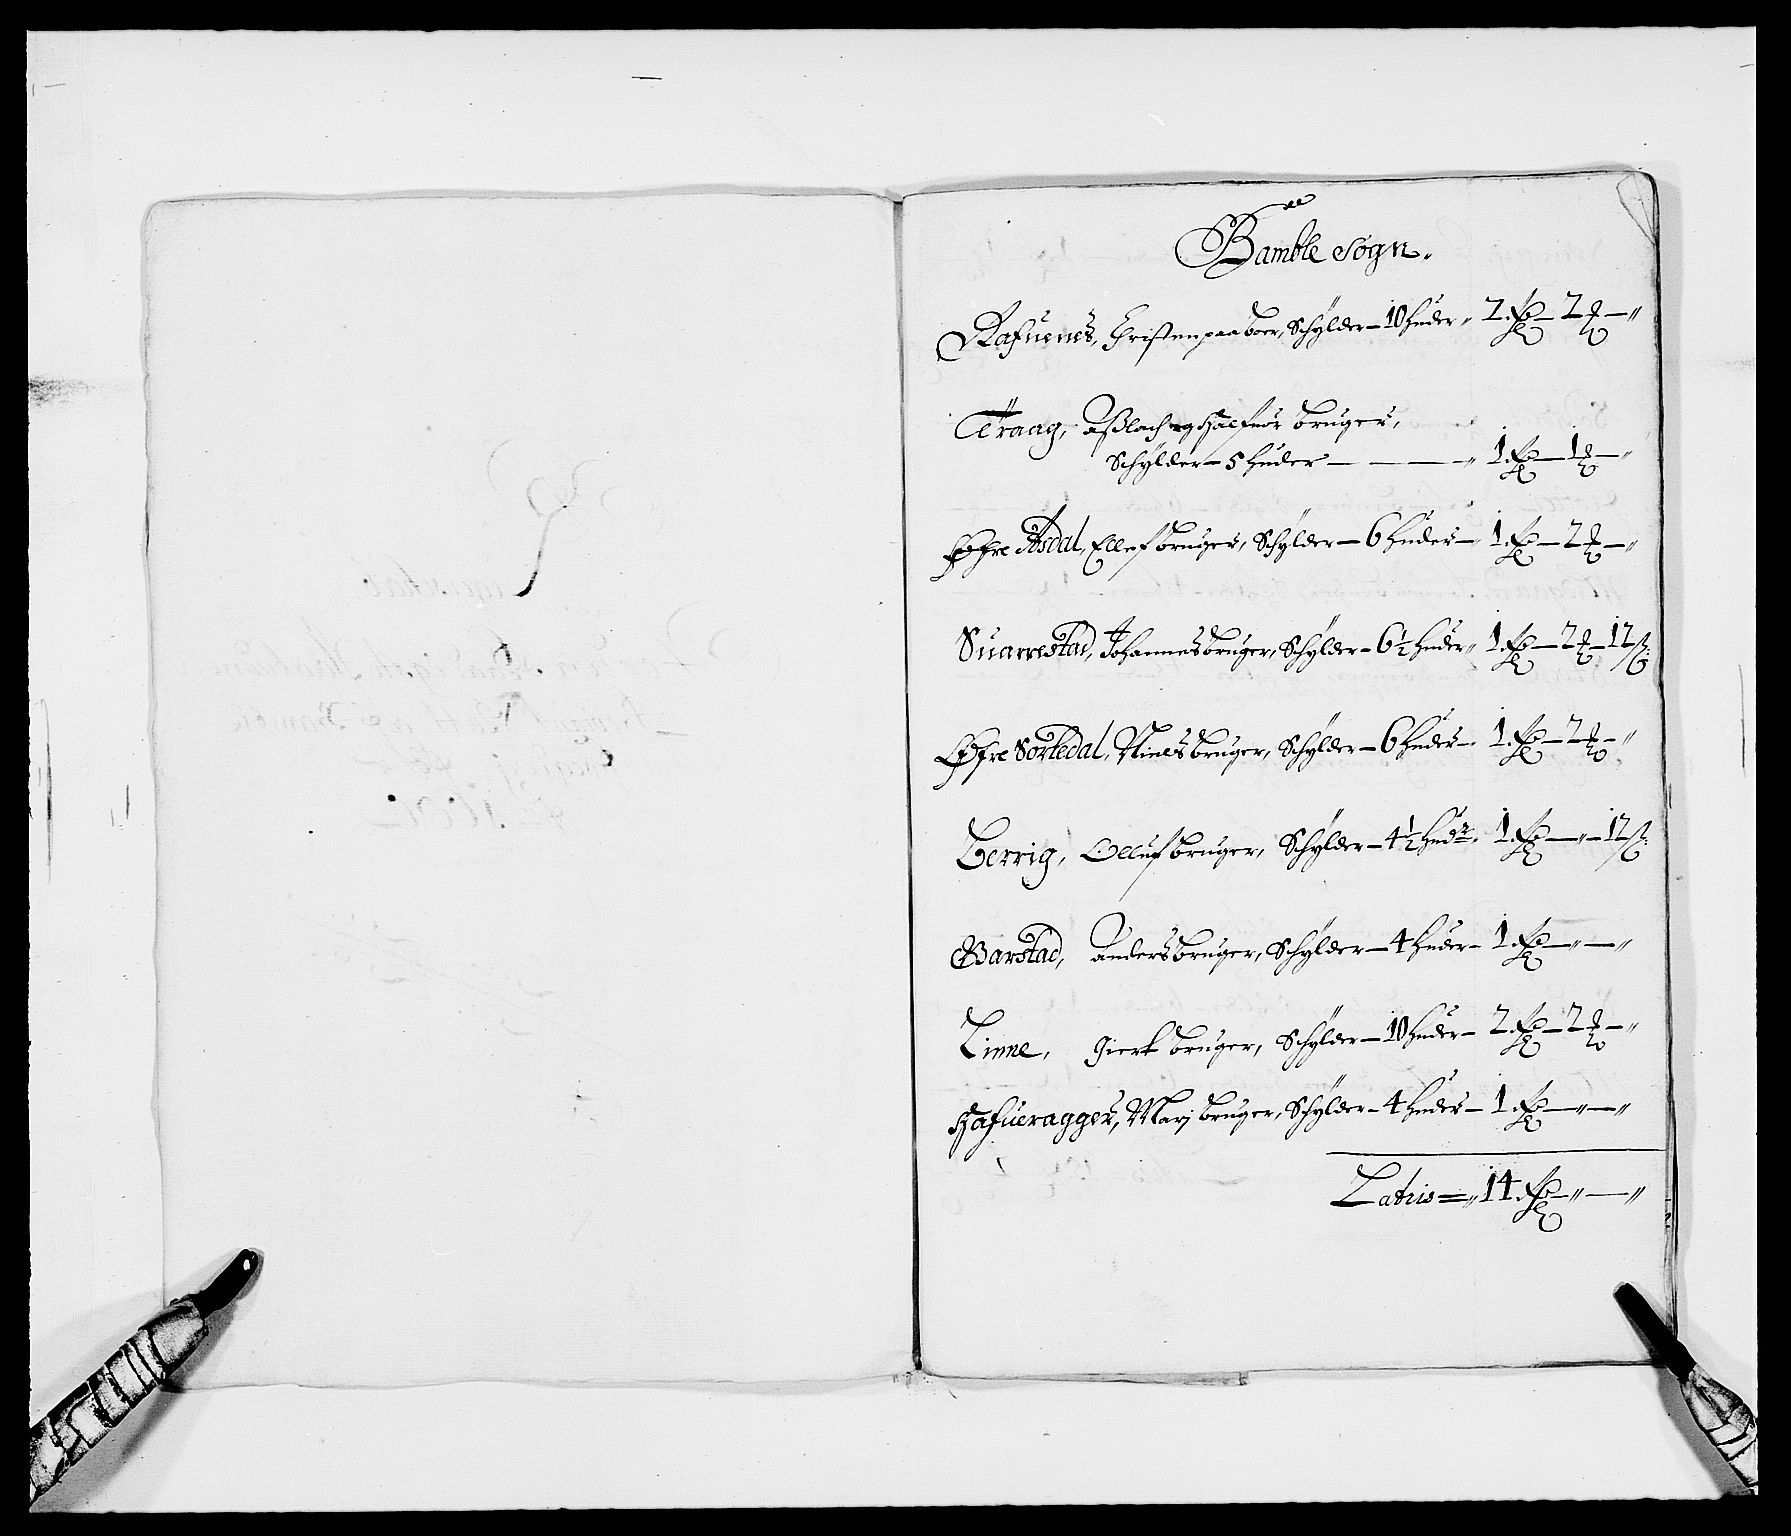 Bamble Sogn.
Rafuenes, Christen paaboer, Schÿlder – 10 huder „ 2 Rdr – 2 ort – „
Traag, Aßlach og Halfuor bruger,
Schÿlder – 5 huder – – – „ 1 Rdr – 1 ort – „
Øfre Asdal, Ellef bruger, Schÿlder – 6 huder – „ 1 Rdr – 2 ort – „
Suarrestad, Johannes bruger, Schÿlder – 6½ huder „ 1 Rdr – 2 ort – 12 ß:
Øfre Sortedal, Niels bruger, Schÿlder – 6 huder – „ 1 Rdr – 2 ort – „
Berrig, Olluf bruger, Schÿlder – 4½ hudr „ 1 Rdr – „ – 12 ß:
Barstad, Anders bruger, Schÿlder – 4 huder – 1 Rdr – „ – „
Linne, Gierk bruger, Schÿlder – 10 huder – 2 Rdr – 2 ort – „
Hafueragger, Marj bruger, Schÿlder – 4 huder – 1 Rdr – „ – „
Latus = „ 14 Rdr – „ – „